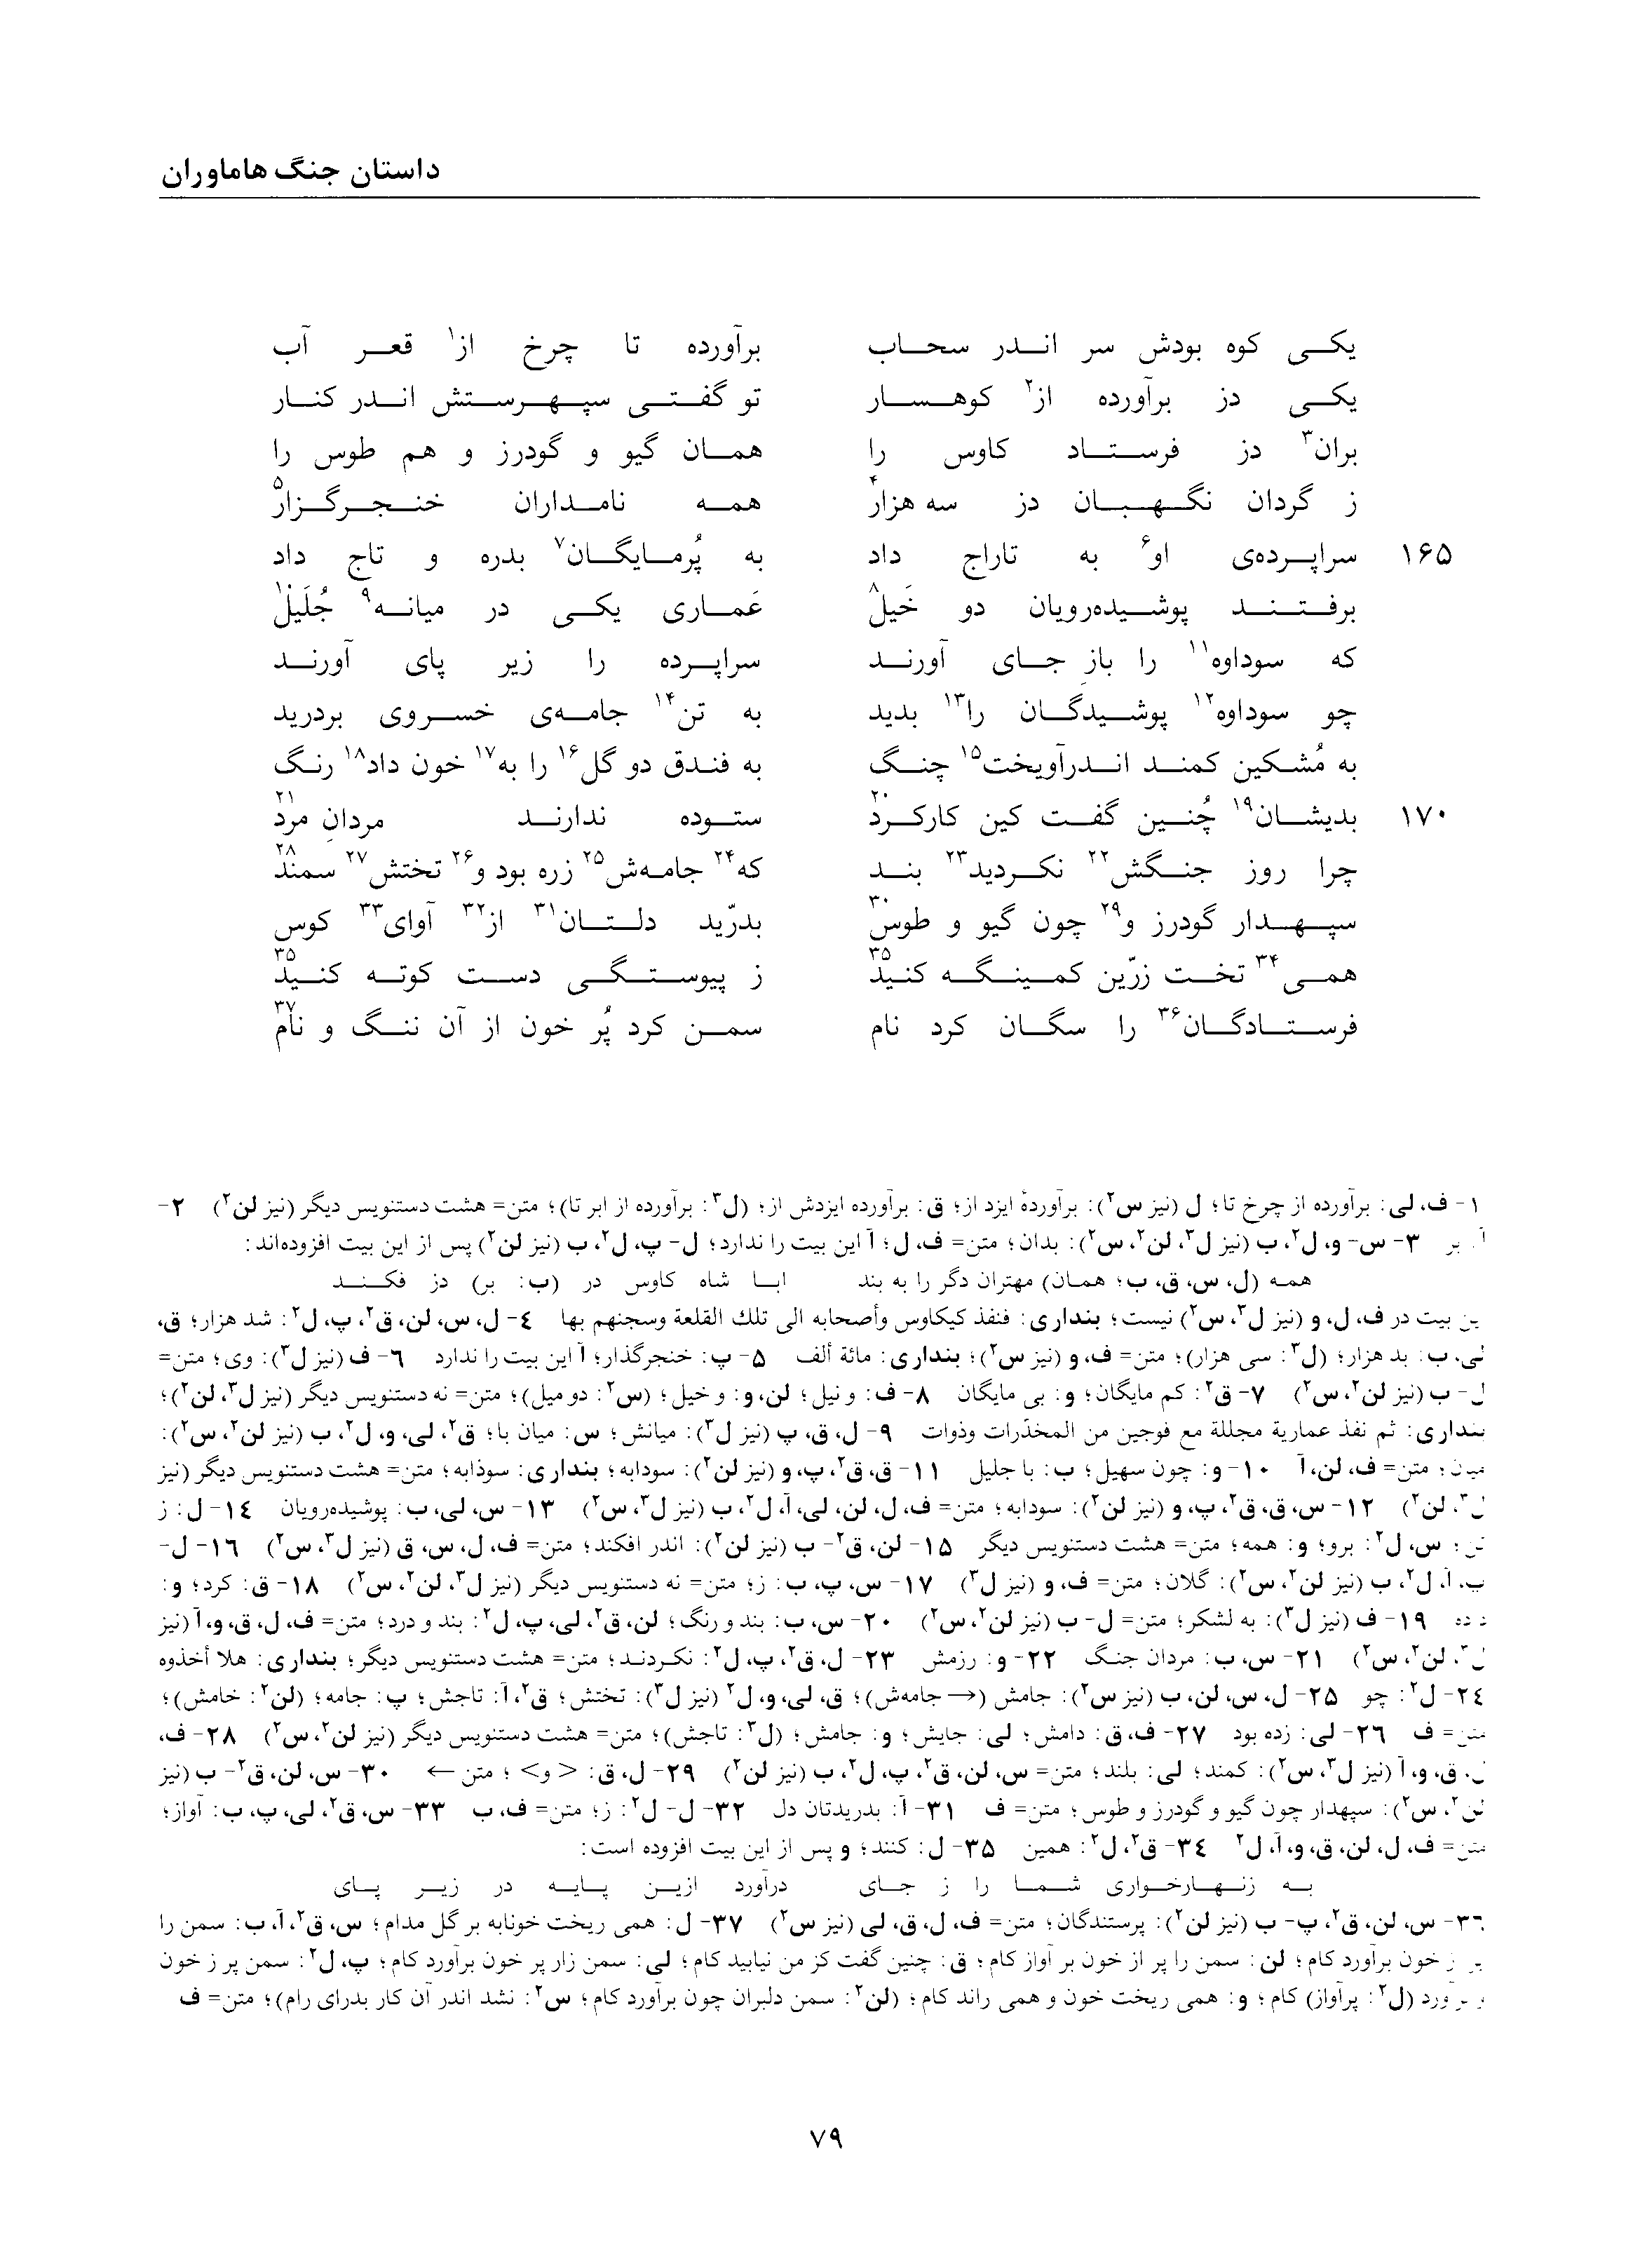 داستان جنگ هاماوران
یکی کوه بودش سر اندر سحاب برآورده تا چرخ از¹ قعر آب
یکی دز برآورده از² کوهسار تو گفتی سپهرستش اندر کنار
بران³ دز فرستاد کاوس را همان گیو و گودرز و هم طوس را
ز گردان نگهبان دز سه هزار⁴ همه نامداران خنجرگزار⁵
۱۶۵ سراپرده‌ی او⁶ به تاراج داد به پُرمایگان⁷ بدره و تاج داد
برفتند پوشیده‌رویان دو خَیل⁸ عَماری یکی در میانه⁹ جُلَیل¹⁰
که سوداوه¹¹ را باز جای آورند سراپرده را زیر پای آورند
چو سوداوه¹² پوشیدگان را¹³ بدید به تن¹⁴ جامه‌ی خسروی بردرید
به مُشکین کمند اندرآویخت¹⁵ چنگ به فندق دو گل¹⁶ را به¹⁷ خون داد¹⁸ رنگ
۱۷۰ بدیشان¹⁹ چُنین گفت کین کارکرد²⁰ ستوده ندارند مردانِ مرد²¹
چرا روز جنگش²² نکردید²³ بند که²⁴ جامه‌ش²⁵ زره بود و²⁶ تختش²⁷ سمند²⁸
سپهدار گودرز و²⁹ چون گیو و طوس³⁰ بدرّید دلتان³¹ از³² آوای³³ کوس
همی³⁴ تخت زرّین کمینگه کنید³⁵ ز پیوستگی دست کوته کنید³⁵
فرستادگان³⁶ را سگان کرد نام سمن کرد پُر خون از آن ننگ و نام³⁷
۱- ف، لی: برآورده از چرخ تا؛ ل (نیز س²): برآوردهٔ ایزد از؛ ق: برآورده ایزدش از؛ (ل³: برآورده از ابر تا)؛ متن= هشت دستنویس دیگر (نیز لن²) ۲-
آ: بر ۳- س- و، ل²، ب (نیز ل³، لن²، س²): بدان؛ متن= ف، ل؛ آ این بیت را ندارد؛ ل- پ، ل²، ب (نیز لن²) پس از این بیت افزوده‌اند:
همه (ل، س، ق، ب؛ همان) مهتران دگر را به بند ابا شاه کاوس در (ب: بر) دز فکند
ین بیت در ف، ل، و (نیز ل³، س²) نیست؛ بنداری: فنفذ کیکاوس وأصحابه الی تلك القلعة وسجنهم بها ۴- ل، س، لن، ق²، پ، ل²: شد هزار؛ ق،
لی، ب: بد هزار؛ (ل³: سی هزار)؛ متن= ف، و (نیز س²)؛ بنداری: مائة ألف ۵- پ: خنجرگذار؛ آ این بیت را ندارد ۶- ف (نیز ل³): وی؛ متن=
ل- ب (نیز لن²، س²) ۷- ق²: کم مایگان؛ و: بی مایگان ۸- ف: و نیل؛ لن، و: و خیل؛ (س²: دو میل)؛ متن= نه دستنویس دیگر (نیز ل³، لن²)؛
بنداری: ثم نفذ عماریة مجللة مع فوجین من المخدّرات وذوات ۹- ل، ق، پ (نیز ل³): میانش؛ س: میان با؛ ق²، لی، و، ل²، ب (نیز لن²، س²):
میان؛ متن= ف، لن، آ ۱۰- و: چون سهیل؛ ب: با جلیل ۱۱- ق، ق²، پ، و (نیز لن²): سودابه؛ بنداری: سوذابه؛ متن= هشت دستنویس دیگر (نیز
ل³، لن²) ۱۲- س، ق، ق²، پ، و (نیز لن²): سودابه؛ متن= ف، ل، لن، لی، آ، ل²، ب (نیز ل³، س²) ۱۳- س، لی، ب: پوشیده‌رویان ۱۴- ل: ز
تن؛ س، ل²: برو؛ و: همه؛ متن= هشت دستنویس دیگر ۱۵- لن، ق²- ب (نیز لن²): اندر افکند؛ متن= ف، ل، س، ق (نیز ل³، س²) ۱۶- ل-
پ، آ، ل²، ب (نیز لن²، س²): گلان؛ متن= ف، و (نیز ل³) ۱۷- س، پ، ب: ز؛ متن= نه دستنویس دیگر (نیز ل³، لن²، س²) ۱۸- ق: کرد؛ و:
داده ۱۹- ف (نیز ل³): به لشکر؛ متن= ل- ب (نیز لن²، س²) ۲۰- س، ب: بند و رنگ؛ لن، ق²، لی، پ، ل²: بند و درد؛ متن= ف، ل، ق، و، آ (نیز
ل³، لن²، س²) ۲۱- س، ب: مردان جنگ ۲۲- و: رزمش ۲۳- ل، ق²، پ، ل²: نکردند؛ متن= هشت دستنویس دیگر؛ بنداری: هلا أخذوه
۲۴- ل²: چو ۲۵- ل، س، لن، ب (نیز س²): جامش (→ جامه‌ش)؛ ق، لی، و، ل² (نیز ل³): تختش؛ ق²، آ: تاجش؛ پ: جامه؛ (لن²: خامش)؛
متن= ف ۲۶- لی: زده بود ۲۷- ف، ق: دامش؛ لی: جایش؛ و: جامش؛ (ل³: تاجش)؛ متن= هشت دستنویس دیگر (نیز لن²، س²) ۲۸- ف،
ل، ق، و، آ (نیز ل³، س²): کمند؛ لی: بلند؛ متن= س، لن، ق²، پ، ل²، ب (نیز لن²) ۲۹- ل، ق: <و>؛ متن ← ۳۰- س، لن، ق²- ب (نیز
لن²، س²): سپهدار چون گیو و گودرز و طوس؛ متن= ف ۳۱- آ: بدریدتان دل ۳۲- ل- ل²: ز؛ متن= ف، ب ۳۳- س، ق²، لی، پ، ب: آواز؛
متن= ف، ل، لن، ق، و، آ، ل² ۳۴- ق²، ل²: همین ۳۵- ل: کنند؛ و پس از این بیت افزوده است:
به زنهارخواری شما را ز جای درآورد ازین پایه در زیر پای
۳۶- س، لن، ق²، پ- ب (نیز لن²): پرستندگان؛ متن= ف، ل، ق، لی (نیز س²) ۳۷- ل: همی ریخت خونابه بر گل مدام؛ س، ق²، آ، ب: سمن را
پر ز خون برآورد کام؛ لن: سمن را پر از خون بر آواز کام؛ ق: چنین گفت کز من نیابید کام؛ لی: سمن زار پر خون برآورد کام؛ پ، ل²: سمن پر ز خون
و برآورد (ل²: پرآواز) کام؛ و: همی ریخت خون و همی راند کام؛ (لن²: سمن دلبران چون برآورد کام؛ س²: نشد اندر آن کار بدرای رام)؛ متن= ف
۷۹